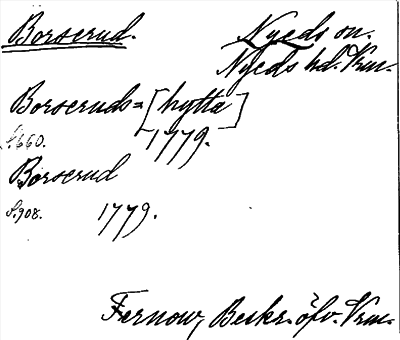 Borserud. Nyeds sn.
Nyeds hd. Vrm.
Borseruds-[hytta]
s.660. 1779.
Borserud
s.908. 1779.
Fernow, Beskr. öfv. Vrm.